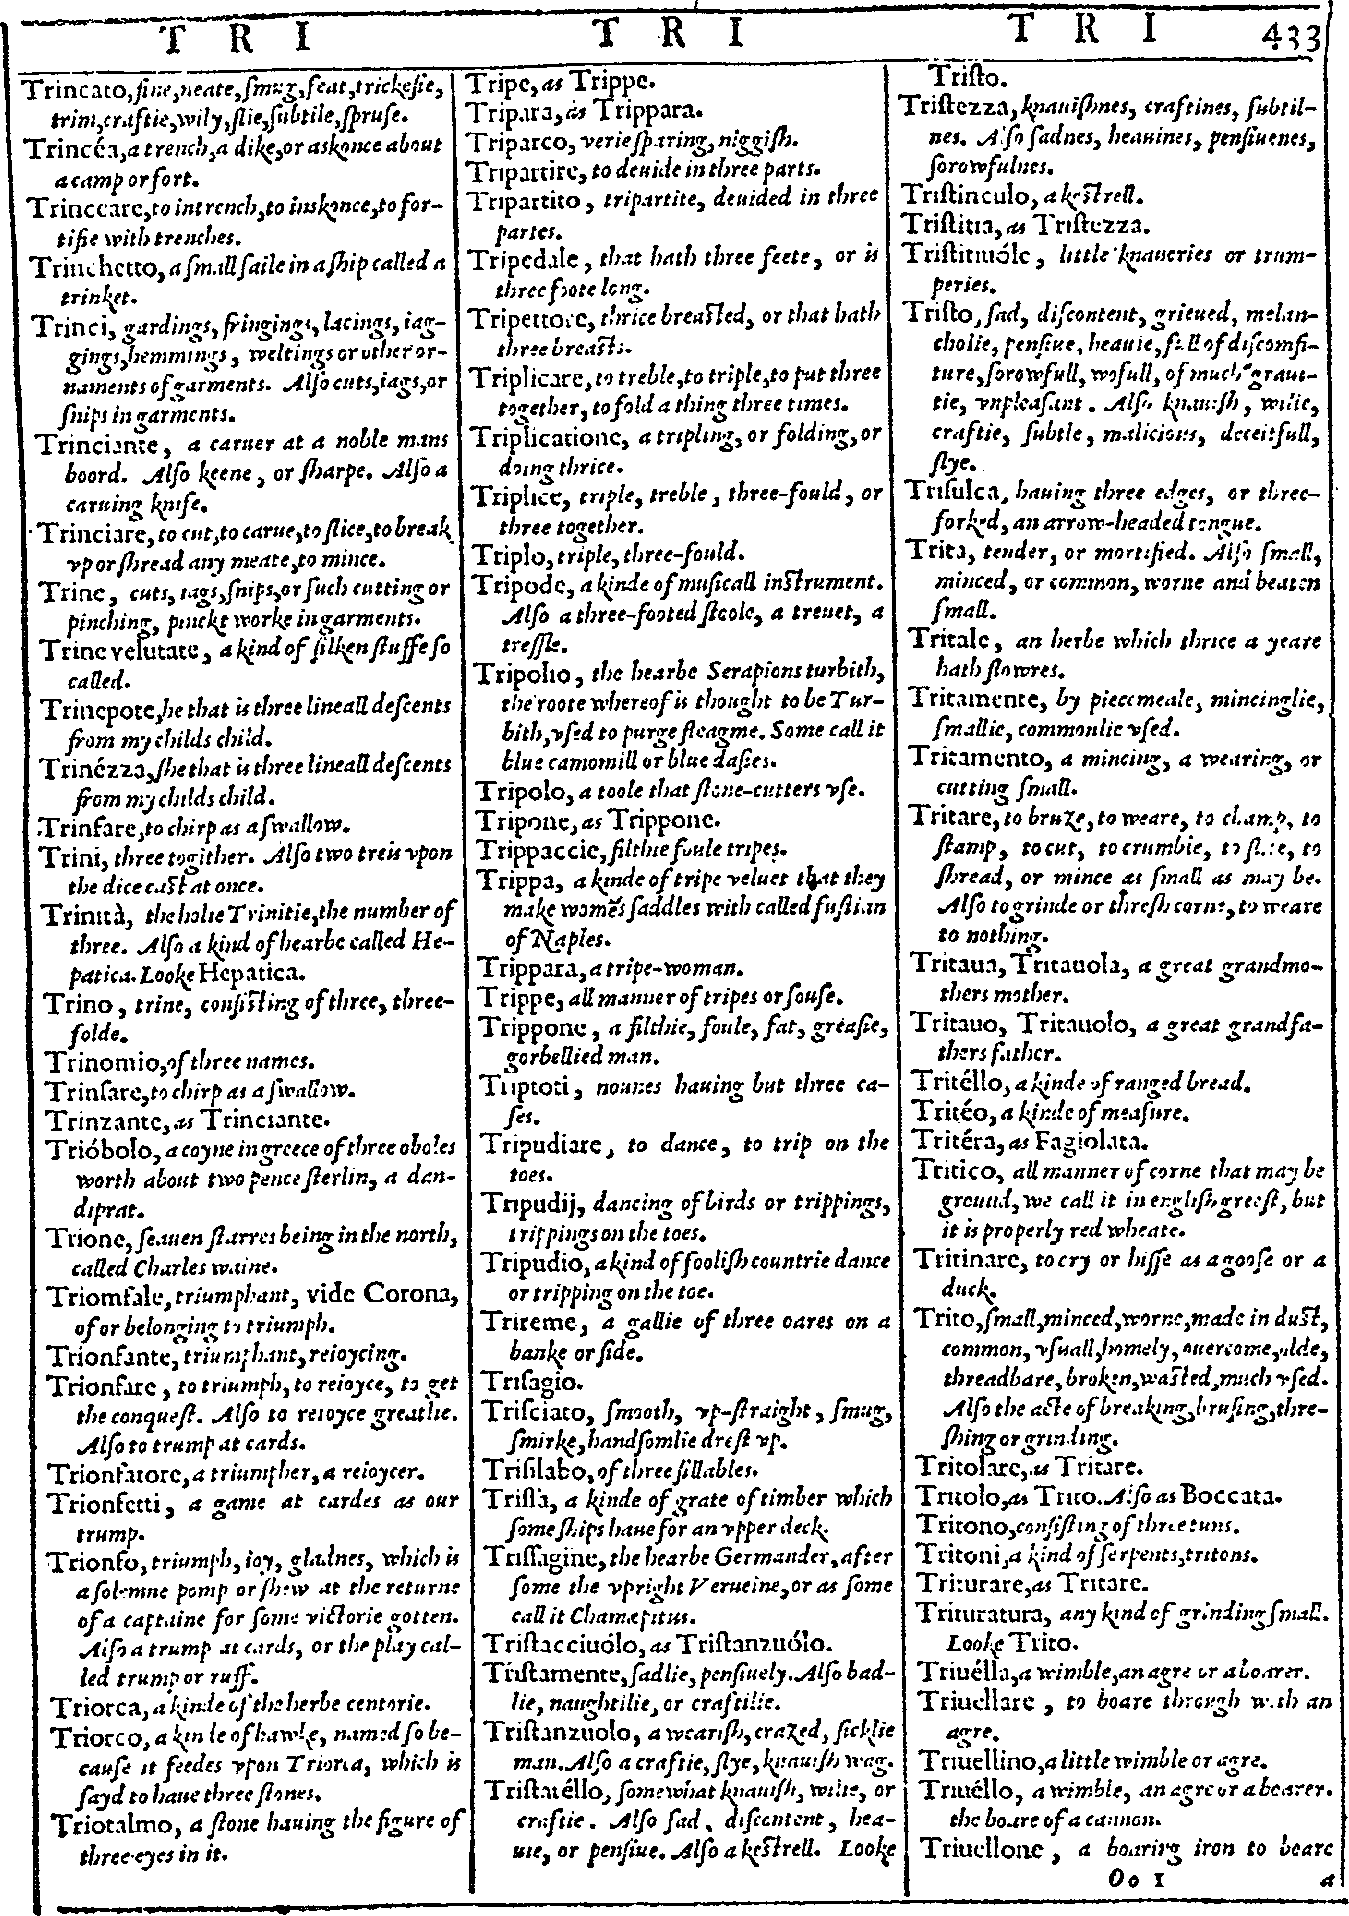 T R I
T R I
T R I 433
Trincato, fine, neate, smug, feat, trickesie,
trim, craftie, wily, slie, subtile, spruse.
Trincéa, a trench, a dike, or askonce about
a camp or fort.
Trinceare, to intrench, to inskonce, to for-
tifie with trenches.
Trinchetto, a small saile in a ship called a
trinket.
Trinci, gardings, fringings, lacings, iag-
gings, hemmings, weltings or other or-
naments of garments. Also cuts, iags, or
snips in garments.
Trinciante, a caruer at a noble mans
boord. Also keene, or sharpe. Also a
caruing knife.
Trinciare, to cut, to carue, to slice, to break
vp or shread any meate, to mince.
Trine, cuts, iags, snips, or such cutting or
pinching, pinckt worke in garments.
Trine velutate, a kind of silken stuffe so
called.
Trinepote, he that is three lineall descents
from my childs child.
Trinézza, she that is three lineall descents
from my childs child.
Trinfare, to chirp as a swallow.
Trini, three togither. Also two treis vpon
the dice cast at once.
Trinità, the holie Trinitie, the number of
three. Also a kind of hearbe called He-
patica. Looke Hepatica.
Trino, trine, consisting of three, three-
folde.
Trinomio, of three names.
Trinsare, to chirp as a swallow.
Trinzante, as Trinciante.
Trióbolo, a coyne in greece of three oboles
worth about two pence sterlin, a dan-
diprat.
Trione, seauen starres being in the north,
called Charles waine.
Triomfale, triumphant, vide Corona,
of or belonging to triumph.
Trionfante, triumphant, reioycing.
Trionfare, to triumph, to reioyce, to get
the conquest. Also to reioyce greatlie.
Also to trump at cards.
Trionfatore, a triumpher, a reioycer.
Trionfetti, a game at cardes as our
trump.
Trionfo, triumph, ioy, gladnes, which is
a solemne pomp or shew at the returne
of a captaine for some victorie gotten.
Also a trump at cards, or the play cal-
led trump or ruff.
Triorca, a kinde of the herbe centorie.
Triorco, a kinde of hawke, named so be-
cause it feedes vpon Triorca, which is
sayd to haue three stones.
Triotalmo, a stone hauing the figure of
three eyes in it.
Tripe, as Trippe.
Tripara, as Trippara.
Triparco, verie sparing, niggish.
Tripartire, to deuide in three parts.
Tripartito, tripartite, deuided in three
partes.
Tripedale, that hath three feete, or is
three foote long.
Tripettore, thrice breasted, or that hath
three breasts.
Triplicare, to treble, to triple, to put three
together, to fold a thing three times.
Triplicatione, a tripling, or folding, or
doing thrice.
Triplice, triple, treble, three-fould, or
three together.
Triplo, triple, three-fould.
Tripode, a kinde of musicall instrument.
Also a three-footed stoole, a treuet, a
tressle.
Tripolio, the hearbe Serapions turbith,
the roote whereof is thought to be Tur-
bith, vsed to purge fleagme. Some call it
blue camomill or blue dasies.
Tripolo, a toole that stone-cutters vse.
Tripone, as Trippone.
Trippaccie, filthie foule tripes.
Trippa, a kinde of tripe veluet that they
make womēs saddles with called fustian
of Naples.
Trippara, a tripe-woman.
Trippe, all manner of tripes or souse.
Trippone, a filthie, foule, fat, greasie,
gorbellied man.
Triptoti, nounes hauing but three ca-
ses.
Tripudiare, to dance, to trip on the
toes.
Tripudij, dancing of birds or trippings,
trippings on the toes.
Tripudio, a kind of foolish countrie dance
or tripping on the toe.
Trireme, a gallie of three oares on a
banke or side.
Trisagio.
Trisciato, smooth, vp-straight, smug,
smirke, handsomlie drest vp.
Trisilabo, of three sillables.
Trista, a kinde of grate of timber which
some ships haue for an vpper deck.
Trissagine, the hearbe Germander, after
some the vpright Verueine, or as some
call it Chamæpitus.
Tristacciuólo, as Tristanzuólo.
Tristamente, sadlie, pensiuely. Also bad-
lie, naughtilie, or craftilie.
Tristanzuolo, a wearish, crazed, sicklie
man. Also a craftie, slye, knauish wag.
Tristatéllo, somewhat knauish, wilie, or
craftie. Also sad, discontent, hea-
uie, or pensiue. Also a kestrell. Looke
Tristo.
Tristezza, knauishnes, craftines, subtil-
nes. Also sadnes, heauines, pensiuenes,
sorowfulnes.
Tristinculo, a kestrell.
Tristitia, as Tristezza.
Tristitiuóle, little knaueries or trum-
peries.
Tristo, sad, discontent, grieued, melan-
cholie, pensiue, heauie, full of discomfi-
ture, sorowfull, wofull, of much graui-
tie, vnpleasant. Also knauish, wilie,
craftie, subtle, malicious, deceitfull,
slye.
Trisulca, hauing three edges, or three-
forked, an arrow-headed tongue.
Trita, tender, or mortified. Also small,
minced, or common, worne and beaten
small.
Tritale, an herbe which thrice a yeare
hath flowres.
Tritamente, by piecemeale, mincinglie,
smallie, commonlie vsed.
Tritamento, a mincing, a wearing, or
cutting small.
Tritare, to bruze, to weare, to champ, to
stamp, to cut, to crumbie, to slice, to
shread, or mince as small as may be.
Also to grinde or thresh corne, to weare
to nothing.
Tritaua, Tritauola, a great grandmo-
thers mother.
Tritauo, Tritauolo, a great grandfa-
thers father.
Tritéllo, a kinde of ranged bread.
Tritéo, a kinde of measure.
Tritéra, as Fagiolata.
Tritico, all manner of corne that may be
ground, we call it in english greest, but
it is properly red wheate.
Tritinare, to cry or hisse as a goose or a
duck.
Trito, small, minced, worne, made in dust,
common, vsuall, homely, ouercome, olde,
threadbare, broken, wasted, much vsed.
Also the acte of breaking, brusing, thre-
shing or grinding.
Tritolare, as Tritare.
Tritolo, as Trito. Also as Boccata.
Tritono, consisting of three tuns.
Tritoni, a kind of serpents, tritons.
Triturare, as Tritare.
Trituratura, any kind of grinding small.
Looke Trito.
Triuélla, a wimble, an agre or a boarer.
Triuellare, to boare through with an
agre.
Triuellino, a little wimble or agre.
Triuéllo, a wimble, an agre or a boarer.
the boare of a cannon.
Triuellone, a boaring iron to beare
Oo 1 a